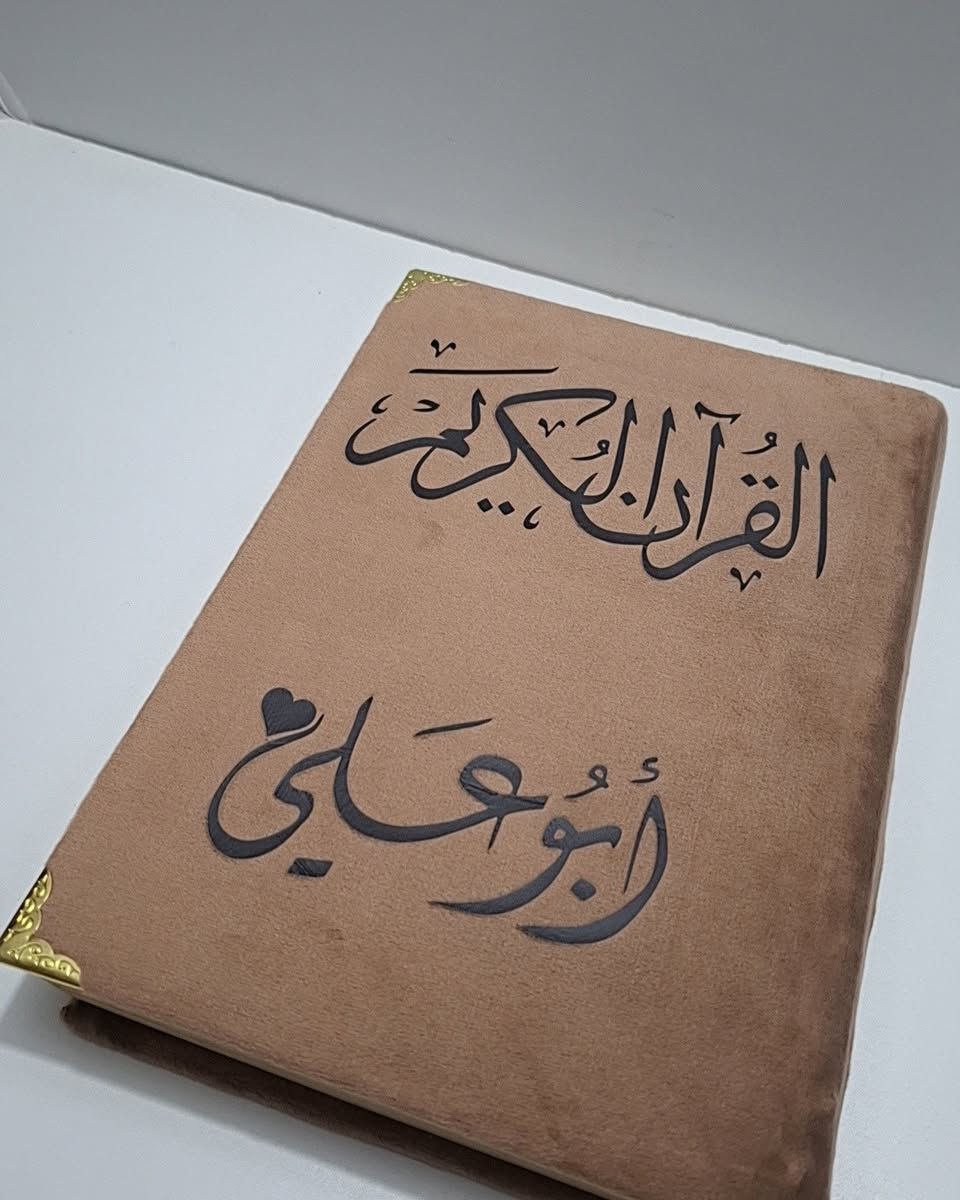 القُرآن الكَريم
أبُو عَلي